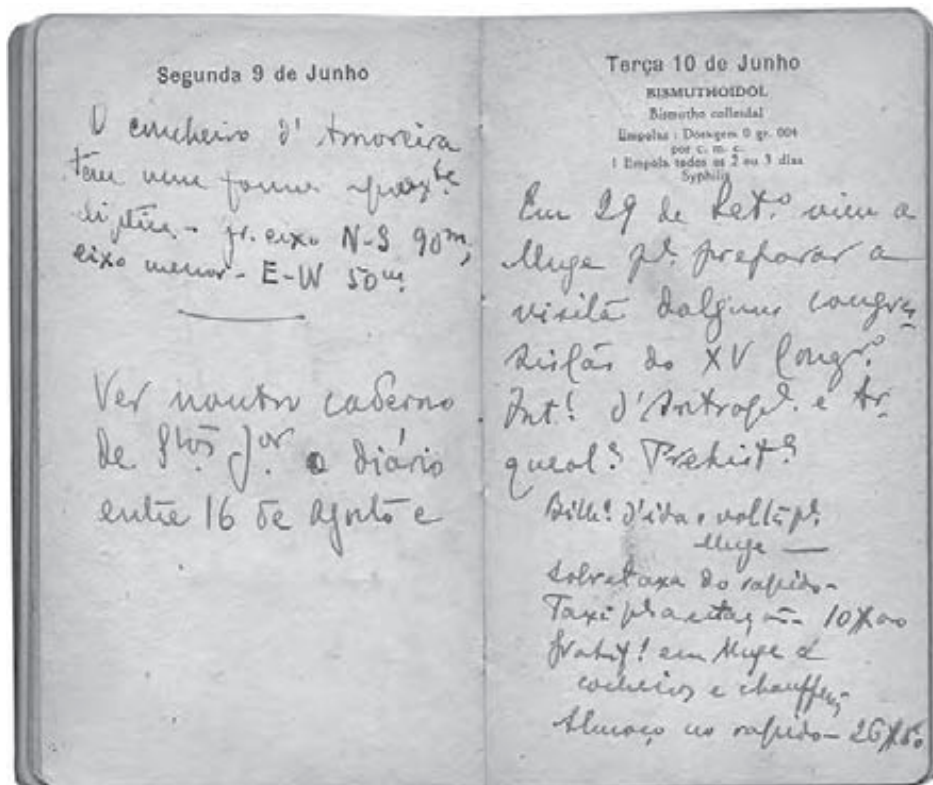 Segunda 9 de Junho
O concheiro d'Amoreira
tem uma forma aprox.te
eliptica - gr. eixo N-S 90m,
eixo menor - E-W 50m.
Ver noutro caderno
de Stos Jor o diário
entre 16 de Agosto e
Terça 10 de Junho
BISMUTHOIDOL
Bismutho colloidal
Empolas : Dosagem 0 gr. 004
por c. m. c.
1 Empola todos os 2 ou 3 dias
Syphilis
Em 29 de Set.o vim a
Muge pa. preparar a
visita dalguns congres
sistas do XV Congr.o
Int.l d'Antrop.a e Ar
queol.a Prehist.a
Bilh.e d'ida e volta pa.
Muge —
Sobretaxa do rapido -
Taxi pa a estação - 10$00
Gratif. em Muge a
cocheiros e chauffeurs
Almoço no rapido -